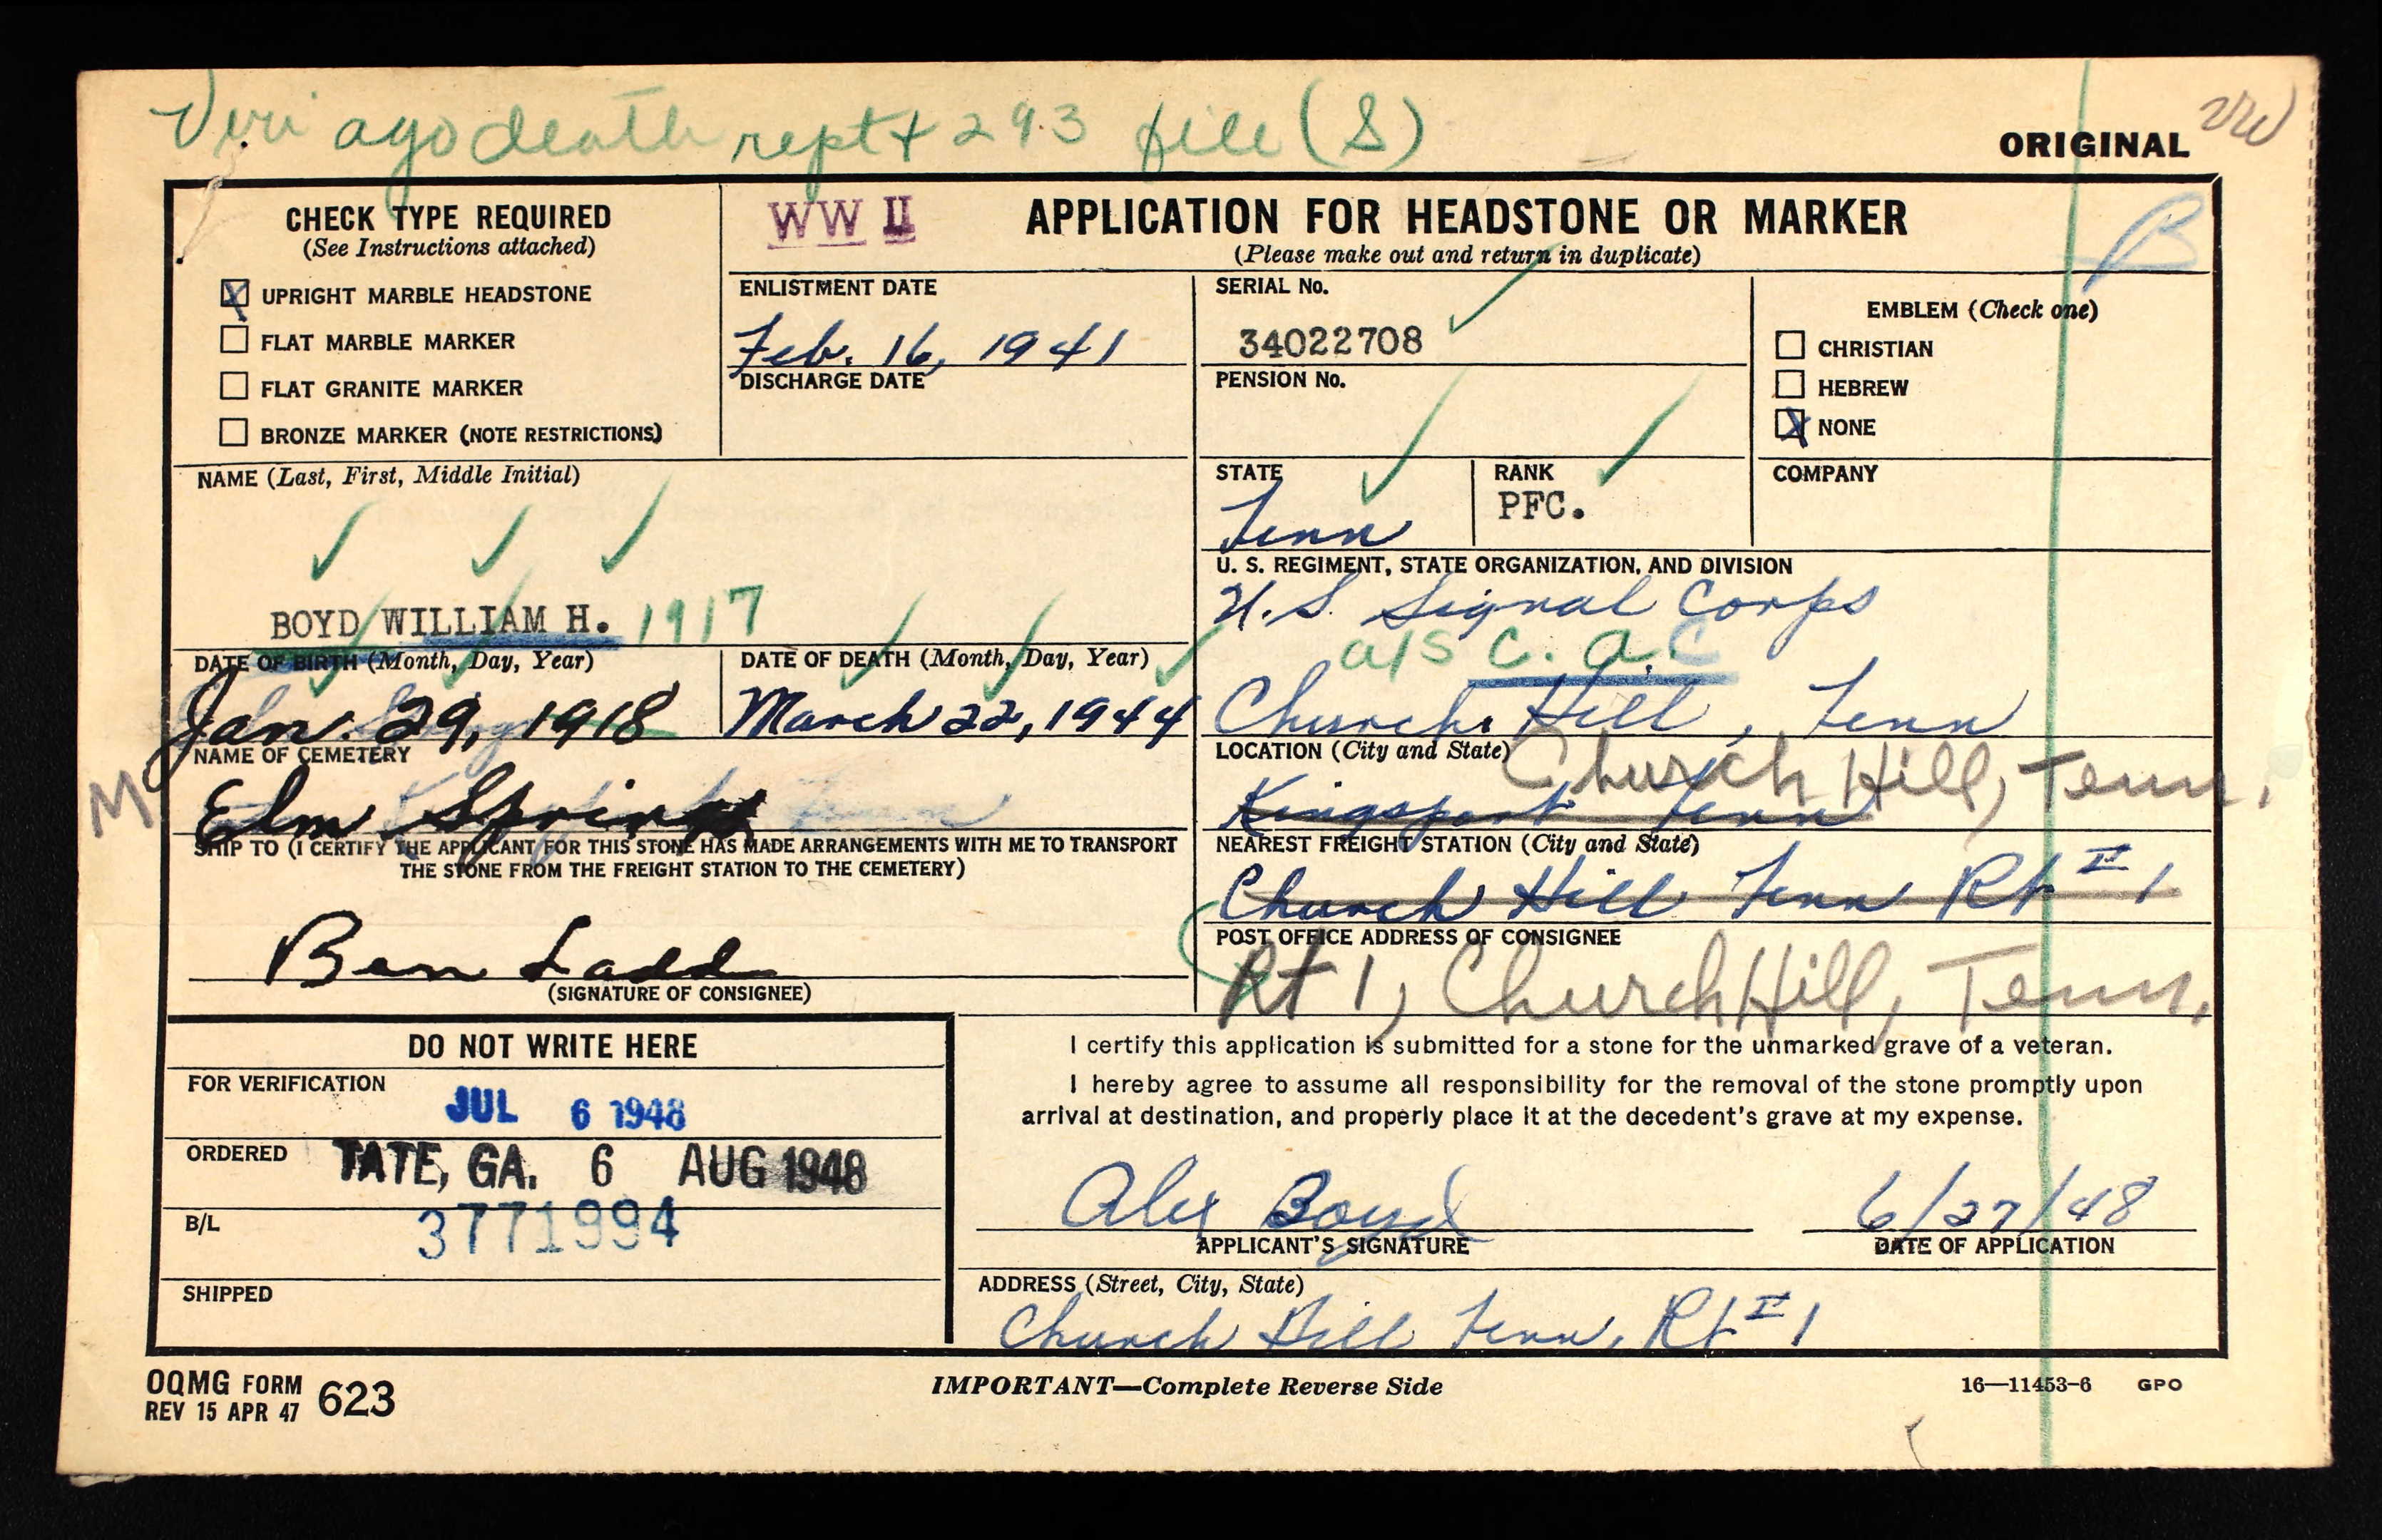 Veri ago death rept + 293 file (S)
ORIGINAL
CHECK TYPE REQUIRED
(See Instructions attached)
X UPRIGHT MARBLE HEADSTONE
FLAT MARBLE MARKER
FLAT GRANITE MARKER
BRONZE MARKER (NOTE RESTRICTIONS)
WW II
APPLICATION FOR HEADSTONE OR MARKER
(Please make out and return in duplicate)
B
ENLISTMENT DATE
Feb. 16, 1941
DISCHARGE DATE
SERIAL No.
34022708
PENSION No.
EMBLEM (Check one)
CHRISTIAN
HEBREW
X NONE
NAME (Last, First, Middle Initial)
BOYD WILLIAM H. 1917
STATE
Tenn
RANK
PFC.
COMPANY
U. S. REGIMENT, STATE ORGANIZATION, AND DIVISION
U.S. Signal Corps
a/s C. A. C
Church Hill, Tenn
DATE OF BIRTH (Month, Day, Year)
Jan. 29, 1918
DATE OF DEATH (Month, Day, Year)
March 22, 1944
NAME OF CEMETERY
Elm Springs
LOCATION (City and State)
Church Hill, Tenn.
Kingsport Tenn
M
SHIP TO (I CERTIFY THE APPLICANT FOR THIS STONE HAS MADE ARRANGEMENTS WITH ME TO TRANSPORT
THE STONE FROM THE FREIGHT STATION TO THE CEMETERY)
Ben Ladd
(SIGNATURE OF CONSIGNEE)
NEAREST FREIGHT STATION (City and State)
Church Hill Tenn Rt # 1
POST OFFICE ADDRESS OF CONSIGNEE
Rt 1, Church Hill, Tenn.
DO NOT WRITE HERE
FOR VERIFICATION
JUL 6 1948
ORDERED
TATE, GA. 6 AUG 1948
B/L
3771994
SHIPPED
I certify this application is submitted for a stone for the unmarked grave of a veteran.
I hereby agree to assume all responsibility for the removal of the stone promptly upon
arrival at destination, and properly place it at the decedent's grave at my expense.
Alex Boyd
APPLICANT'S SIGNATURE
6/27/48
DATE OF APPLICATION
ADDRESS (Street, City, State)
Church Hill Tenn, Rt # 1
OQMG FORM 623
REV 15 APR 47
IMPORTANT—Complete Reverse Side
16—11453-6 GPO